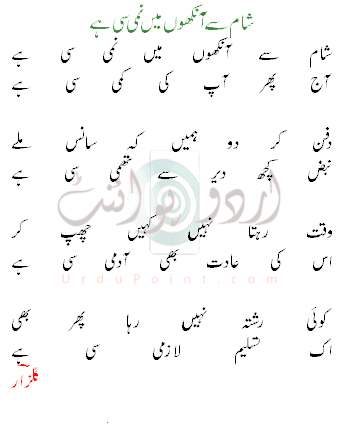 شام سے آنکھوں میں نمی سی ہے
شام سے آنکھوں میں نمی سی ہے
آج پھر آپ کی کمی سی ہے
دفن کر دو ہمیں کہ سانس ملے
نبض کچھ دیر سے تھمی سی ہے
اردو پوائنٹ
وقت رہتا نہیں کہیں چھپ کر
اس کی عادت بھی آدمی سی ہے
UrduPoint.com
کوئی رشتہ نہیں رہا پھر بھی
اک تسلیم لازمی سی ہے
گلزار